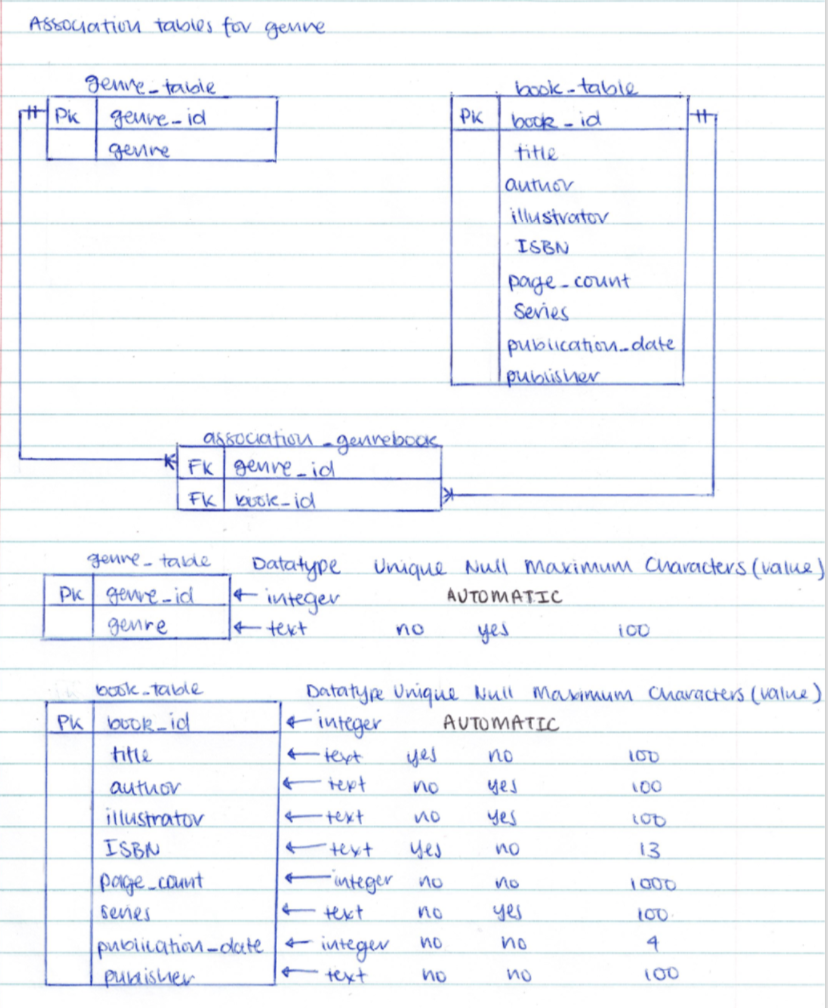 Association tables for genre
genre_table
PK genre_id
genre
book_table
PK book_id
title
author
illustrator
ISBN
page_count
series
publication_date
publisher
association_genrebook
FK genre_id
FK book_id
genre_table Datatype Unique Null Maximum Characters (value)
PK genre_id ← integer AUTOMATIC
genre ← text no yes 100
book_table Datatype Unique Null Maximum Characters (value)
PK book_id ← integer AUTOMATIC
title ← text yes no 100
author ← text no yes 100
illustrator ← text no yes 100
ISBN ← text yes no 13
page_count ← integer no no 1000
series ← text no yes 100
publication_date ← integer no no 4
publisher ← text no no 100